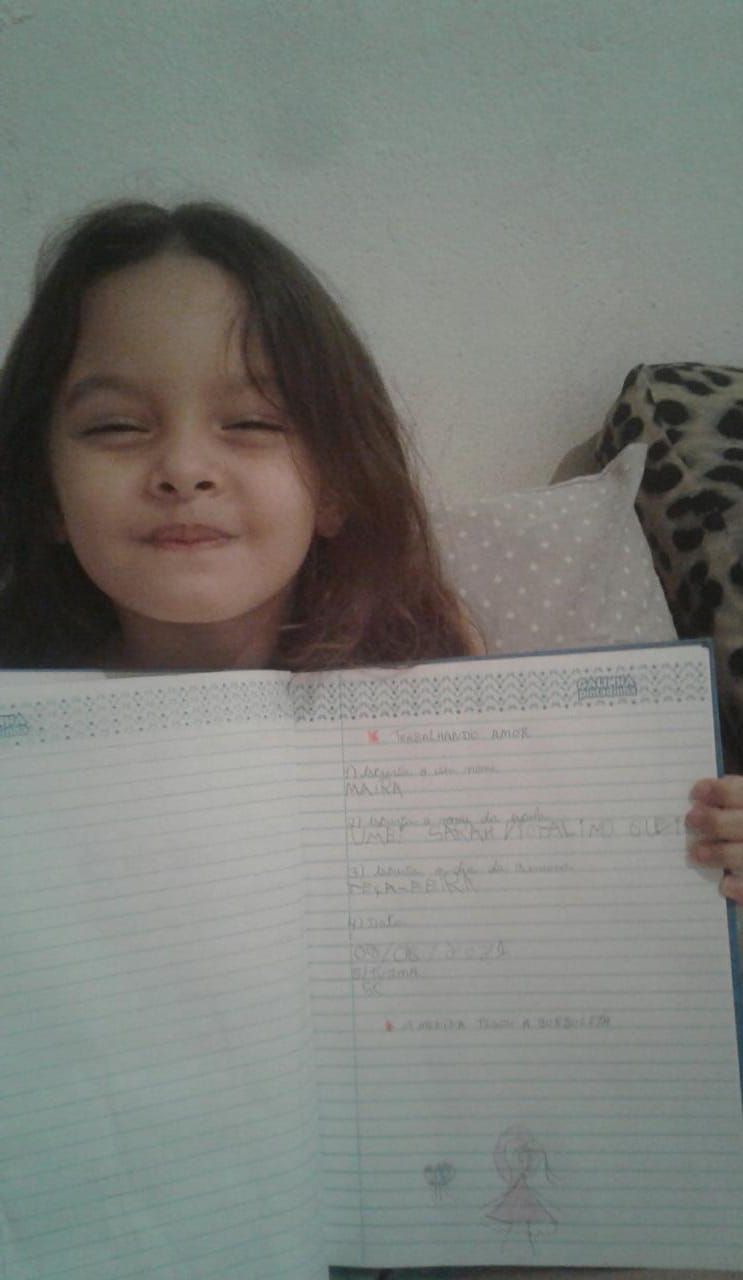 GALINHA
pintadinha
* TRABALHANDO AMOR
1) Escreva o seu nome
MAIRA
2) Escreva o nome da escola
UMEI SARAH VICTALINO GUEI
3) Escreva o dia da semana
TEÇA-FEIRA
4) Data
5) TURMA
5C
* A MENINA PEGOU A BORBOLETA